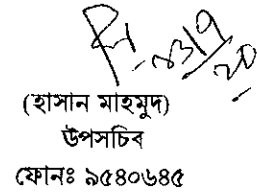 (হাসান মাহমুদ)
উপসচিব
ফোনঃ ৯৫৪০৬৪৫